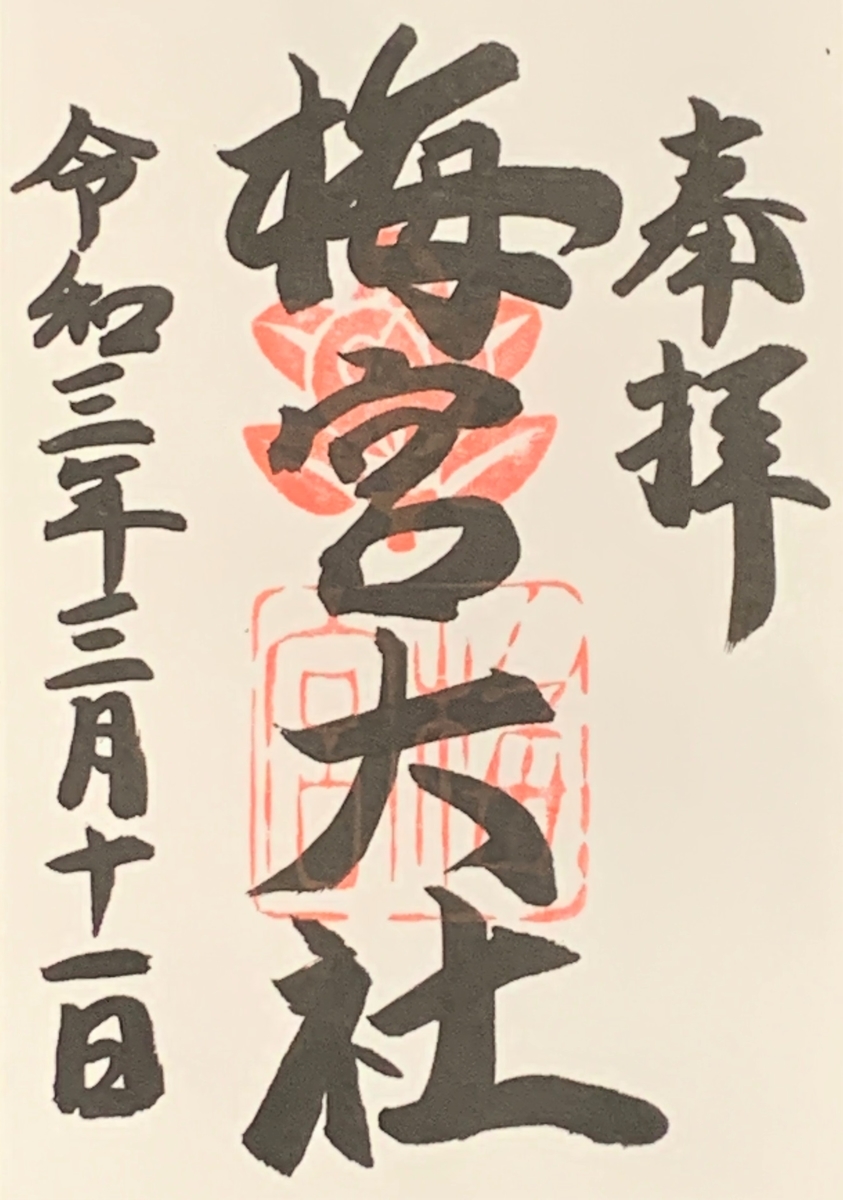 奉拝
梅宮大社
梅宮
令和三年三月十一日